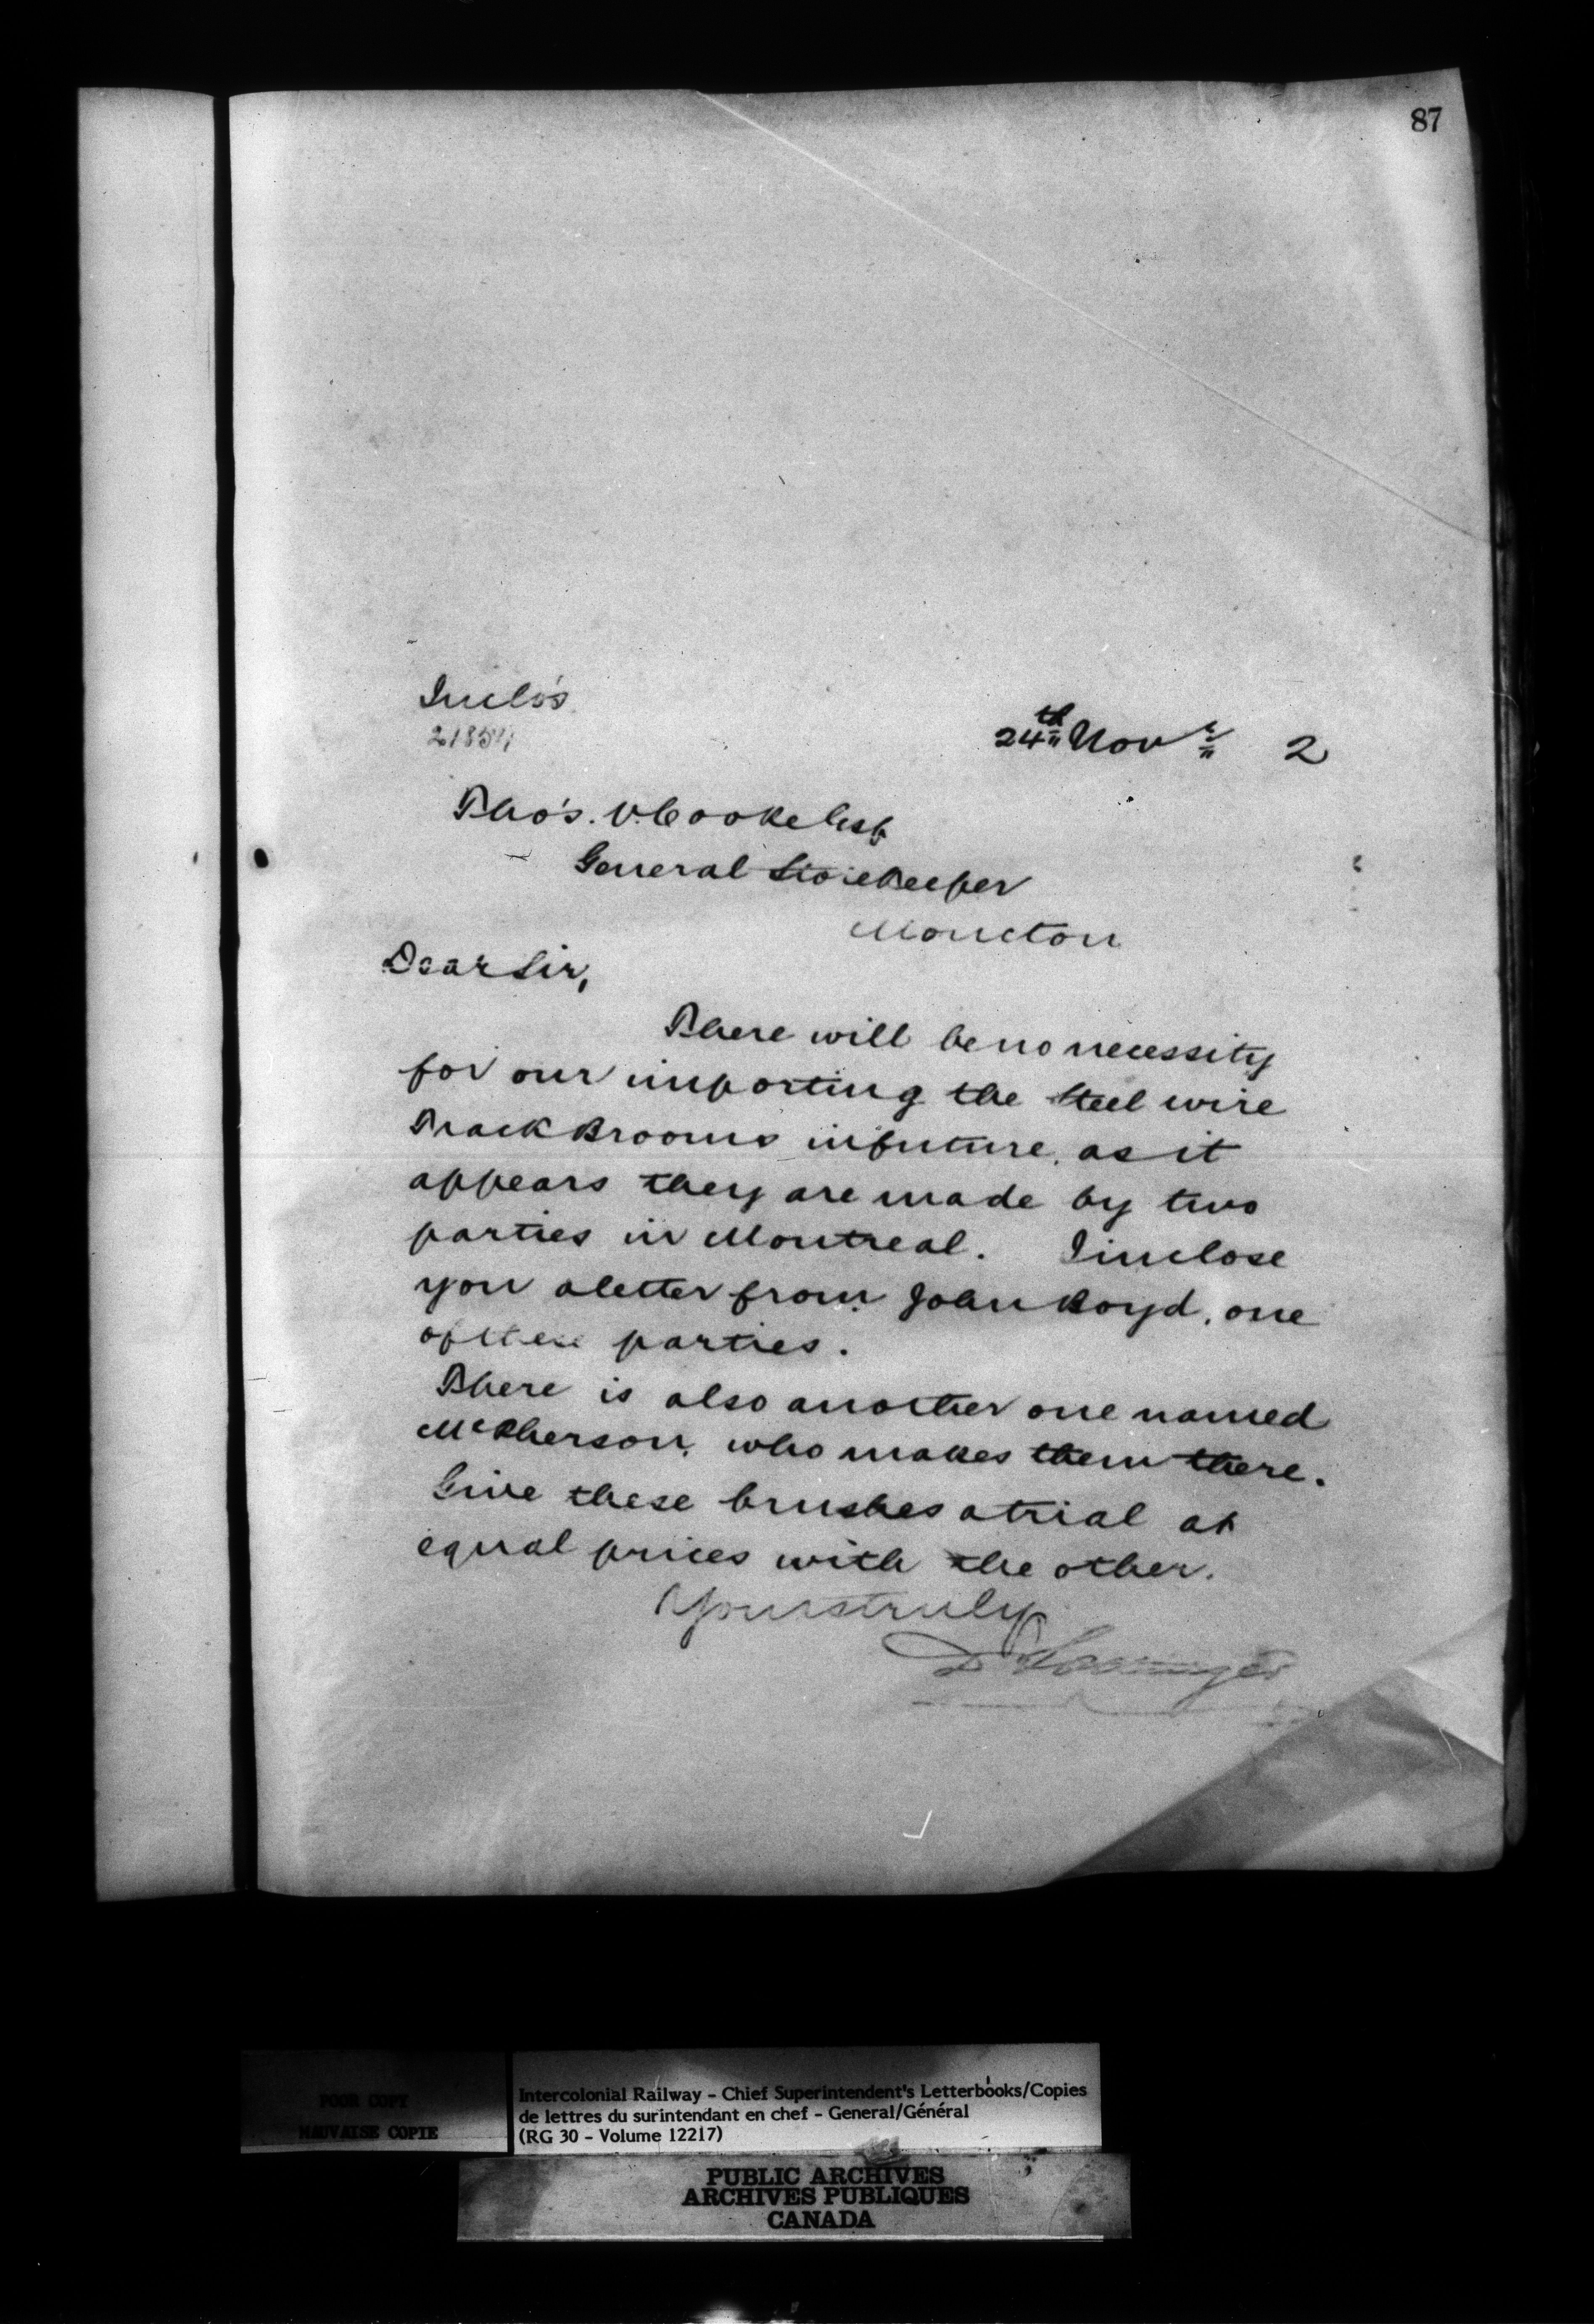 87
Inclo's
21854
24th Novr 2
Tho's. V. Cooke Esq
General Storekeeper
Moncton
Dear Sir,
There will be no necessity
for our importing the Steel wire
Track Brooms in future, as it
appears they are made by two
parties in Montreal. I inclose
you a letter from John Boyd, one
of these parties.
There is also another one named
McPherson, who makes them there.
Give these brushes a trial at
equal prices with the other.
Yours truly
D Pottinger
POOR COPY
MAUVAISE COPIE
Intercolonial Railway - Chief Superintendent's Letterbooks/Copies
de lettres du surintendant en chef - General/Général
(RG 30 - Volume 12217)
PUBLIC ARCHIVES
ARCHIVES PUBLIQUES
CANADA